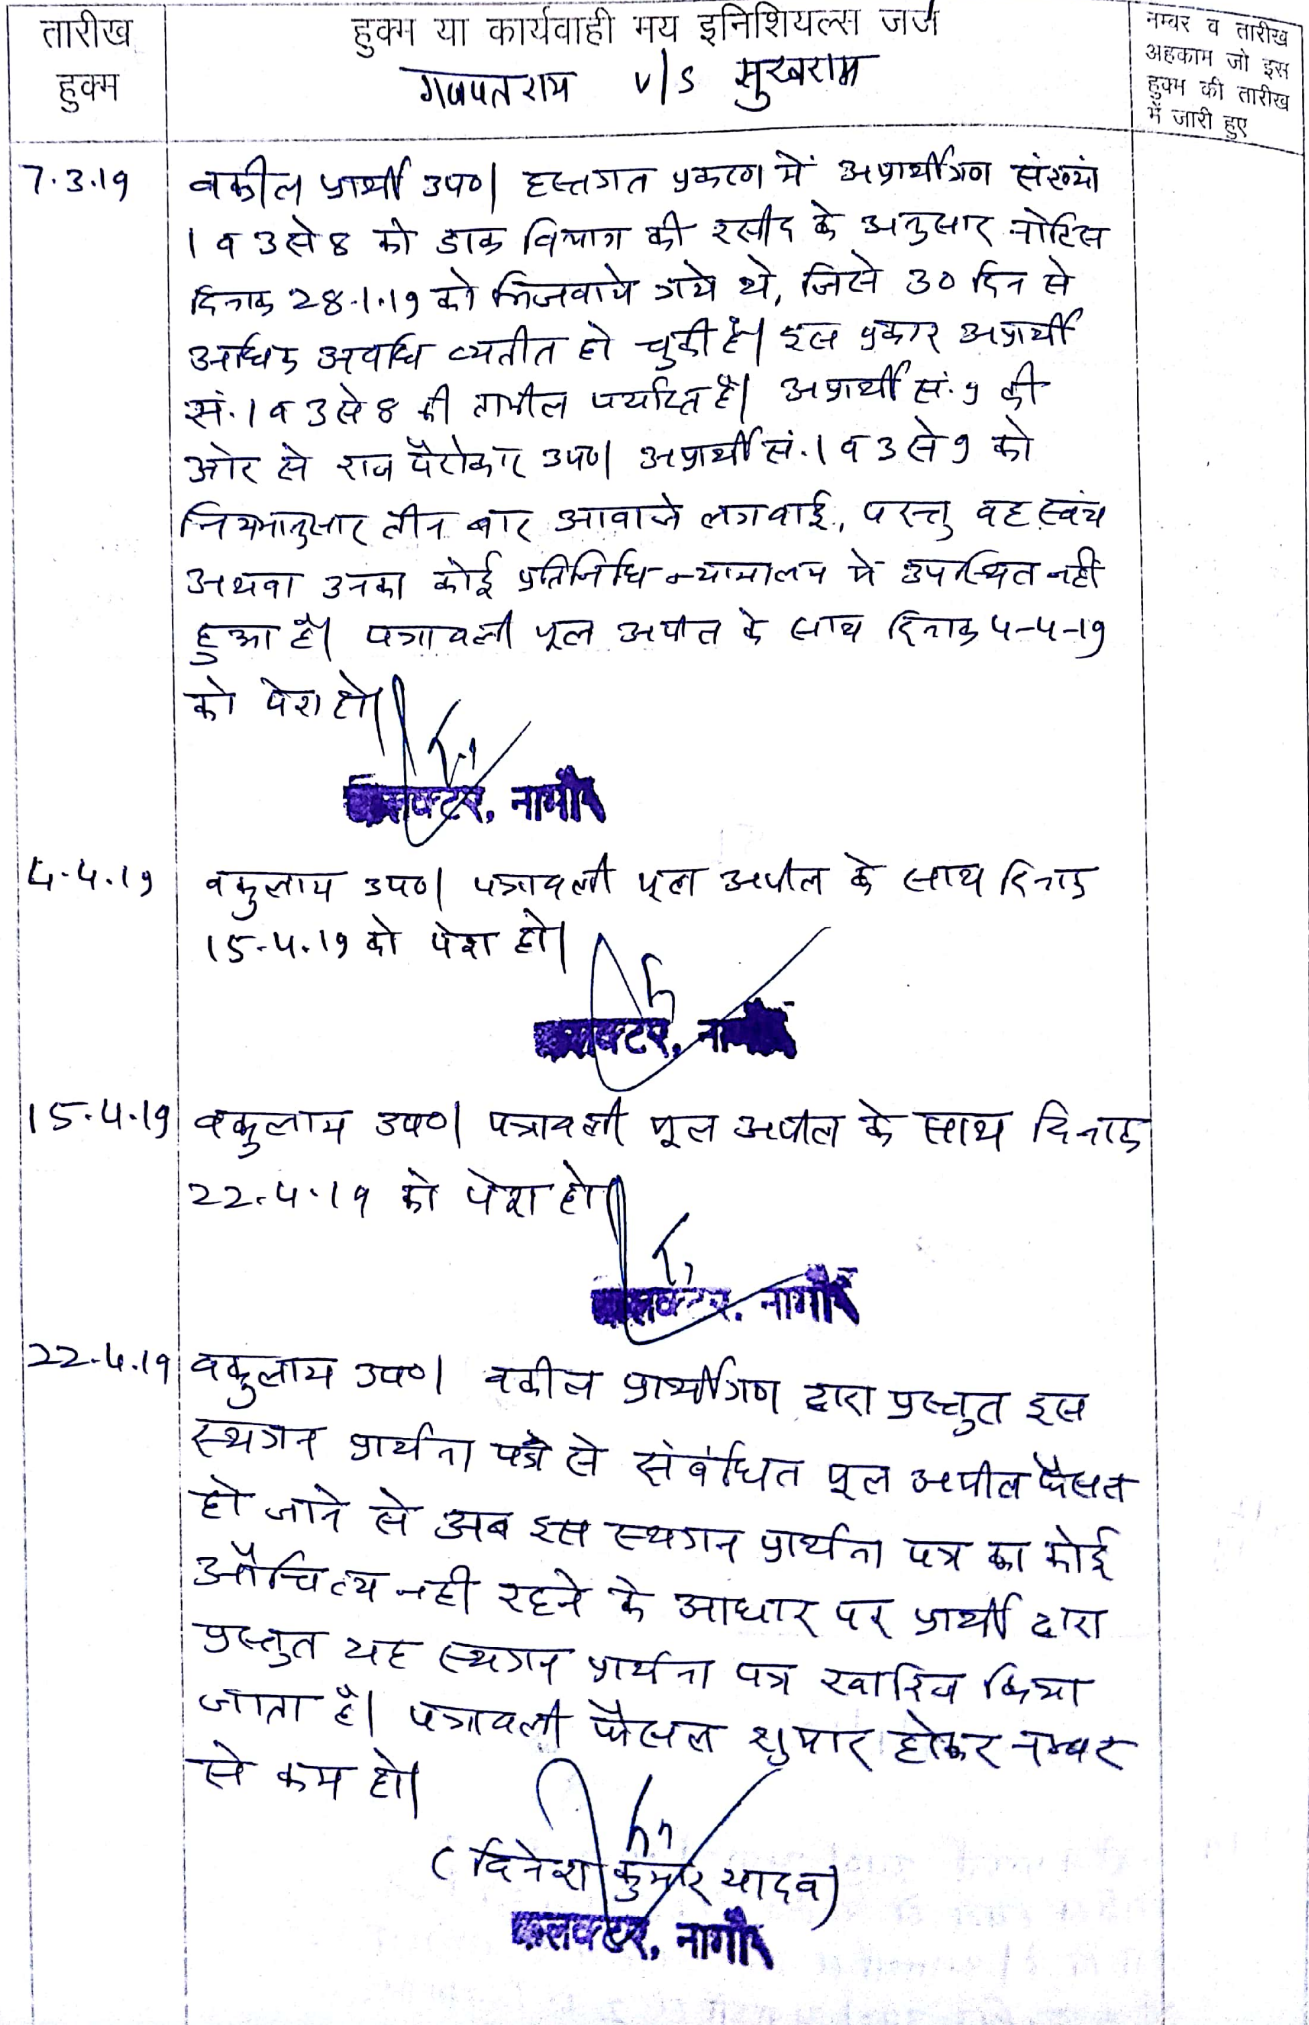 तारीख
हुक्म
हुक्म या कार्यवाही मय इनिशियल्स जज
गणपतराय v/s सुखराम
नम्बर व तारीख
अहकाम जो इस
हुक्म की तारीख
में जारी हुए
7.3.19
वकील प्रार्थी उप०| हस्तगत प्रकरण में अप्रार्थीगण संख्या
1 व 3 से 8 को डाक विभाग की रसीद के अनुसार नोटिस
दिनांक 28.1.19 को भिजवाये गये थे, जिसे 30 दिन से
अधिक अवधि व्यतीत हो चुकी है| इस प्रकार अप्रार्थी
सं. 1 व 3 से 8 की तामील पर्याप्त है| अप्रार्थी सं. 9 की
ओर से राज पैरोकार उप०| अप्रार्थी सं. 1 व 3 से 9 को
नियमानुसार तीन बार आवाजे लगवाई, परन्तु वह स्वंय
अथवा उनका कोई प्रतिनिधि न्यायालय में उपस्थित नही
हुआ है| पत्रावली मूल अपील के साथ दिनांक 4-4-19
को पेश हो|
कलक्टर, नागौर
4.4.19
वकुलाय उप०| पत्रावली मूल अपील के साथ दिनांक
15.4.19 को पेश हो|
कलक्टर, नागौर
15.4.19
वकुलाय उप०| पत्रावली मूल अपील के साथ दिनांक
22.4.19 को पेश हो|
कलक्टर, नागौर
22.4.19
वकुलाय उप०| वकील प्रार्थीगण द्वारा प्रस्तुत इस
स्थगन प्रार्थना पत्र से संबंधित मूल अपील फैसल
हो जाने से अब इस स्थगन प्रार्थना पत्र का कोई
औचित्य नही रहने के आधार पर प्रार्थी द्वारा
प्रस्तुत यह स्थगन प्रार्थना पत्र खारिज किया
जाता है| पत्रावली फैसल शुमार होकर नम्बर
से कम हो|
(दिनेश कुमार यादव)
कलक्टर, नागौर